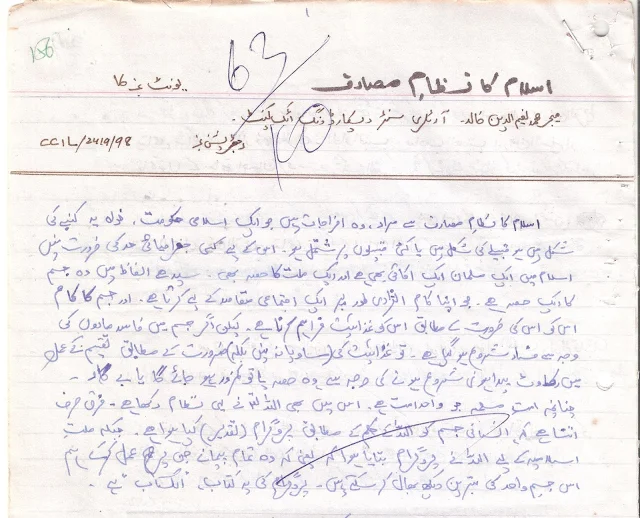 186
63/100
یونٹ نمبر 6
اسلام کا نظامِ مصارف
میجر محمد نعیم الدین خالد۔ آرٹلری سنٹر ریکارڈ ونگ اٹک کینٹ۔
رجسٹریشن نمبر
CC1L/2419/98
اسلام کا نظامِ مصارف سے مراد، وہ اخراجات ہیں جو ایک اسلامی حکومت، خواہ یہ کنبے کی
شکل میں ہو قبیلے کی شکل میں یا کئی قبیلوں پر مشتمل ہو۔ اس کے لیے کسی جغرافیائی حد کی ضرورت نہیں
اسلام میں ایک مسلمان ایک اکائی بھی ہے اور ایک ملت کا حصہ بھی۔ سیدھے الفاظ میں وہ جسم
کا ایک حصہ ہے۔ جو اپنا کام انفرادی طور پر ایک اجتماعی مقاصد کے لیے کرتا ہے۔ اور جسم کا کام
اس کو اس کی ضرورت کے مطابق اس کو غذائیت فراہم کرنا ہے۔ لیکن اگر جسم میں فاسد مادوں کی
وجہ سے فساد شروع ہو گیا ہے۔ تو غذائیت کی (مساویانہ نہیں بلکہ) ضرورت کے مطابق تقسیم کے عمل
میں رکاوٹ پیدا ہونی شروع ہونے کی وجہ سے وہ حصہ یا تو کمزور ہو جائے گا یا بے کار۔
چنانچہ امت مسلمہ جو واحد امت ہے۔ اس میں بھی اللہ نے یہی نظام رکھا ہے۔ فرق صرف
اتنا ہے کہ انسانی جسم کو اللہ کے حکم کے مطابق پروگرام (تقدیر) کیا ہوا ہے۔ جبکہ ملتِ
اسلامیہ کے لیے اللہ نے پروگرام بتایا ہوا ہے یعنی کہ وہ تمام پیمانے جن پر عمل کر کے ہم
اس جسمِ واحد کی بہترین دیکھ بھال کر سکتے ہیں۔ پروگرام کی یہ کتاب، الکتاب ہے۔